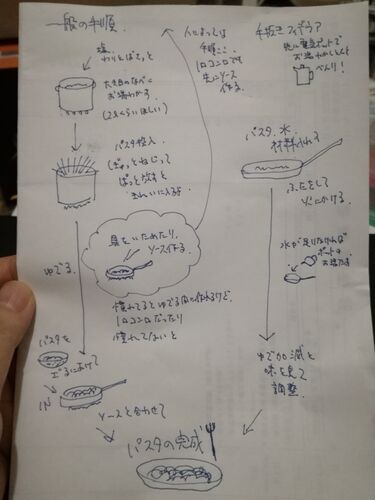 一般の手順
塩
わりとばさっと
大き目のなべに
お湯わかす
(2Lくらいほしい)
パスタ投入
ぎゅっとねじって
ぱっと放すと
きれいに入るよ
ゆでる
具をいためたり、
ソース作る
慣れてるとゆでる間に作れるけど、
1口コンロだったり
慣れてないと
人によっては
手順ここ
1口コンロです
先にソース
作る。
パスタを
ざるにあげて
IN
ソースと合わせて
パスタの完成
手抜き
先に電気ポットで
お湯わかしとくと
べんり!
パスタ、水、
材料入れて
ふたをして
火にかける。
水が足りなければ
ポットの
お湯たす
ゆで加減と
味を見て
調整